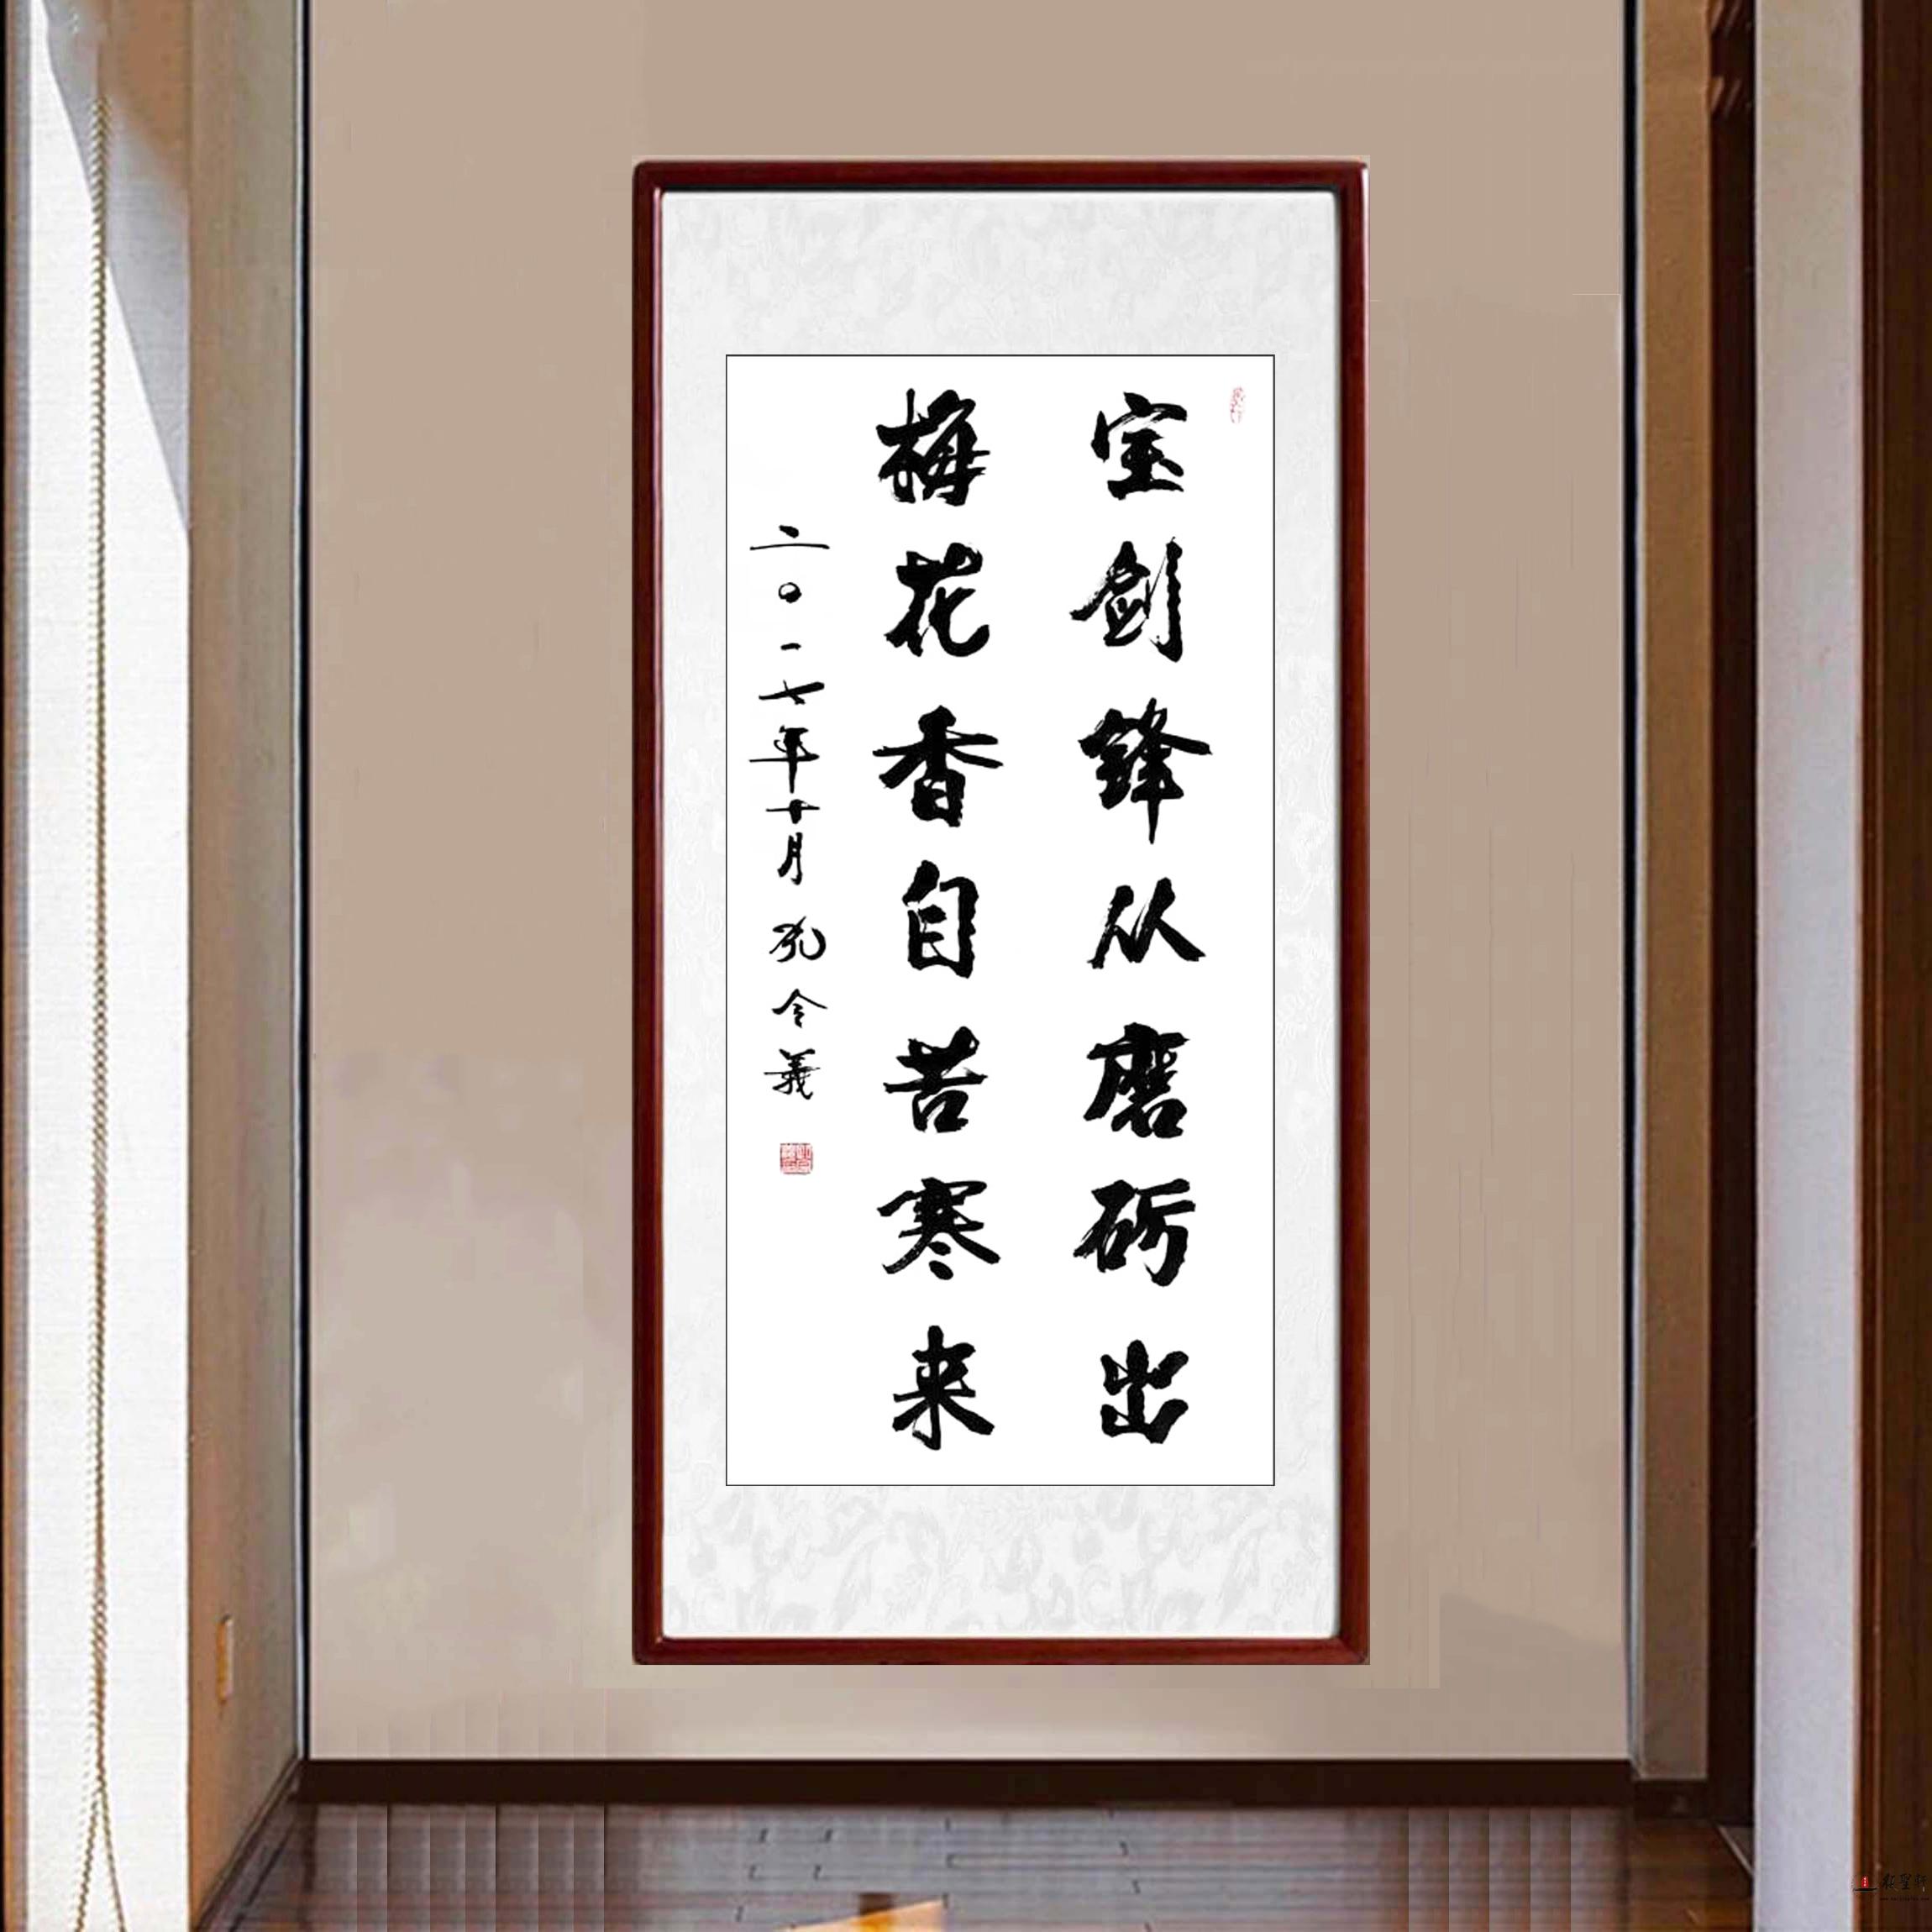 宝剑锋从磨砺出
梅花香自苦寒来
二〇一七年十月 孔令義